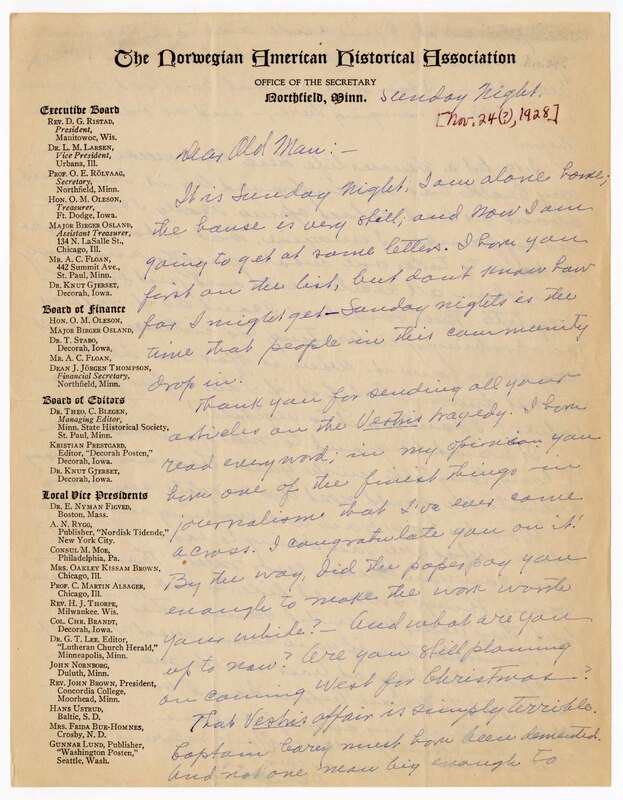 The Norwegian American Historical Association
OFFICE OF THE SECRETARY
Northfield, Minn.
Sunday Night.
[Nov. 24(?), 1928]
Executive Board
REV. D. G. RISTAD,
President,
Manitowoc, Wis.
DR. L. M. LARSEN,
Vice President,
Urbana, Ill.
PROF. O. E. RÖLVAAG,
Secretary,
Northfield, Minn.
HON. O. M. OLESON,
Treasurer,
Ft. Dodge, Iowa.
MAJOR BIRGER OSLAND,
Assistant Treasurer,
134 N. LaSalle St.,
Chicago, Ill.
MR. A. C. FLOAN,
442 Summit Ave.,
St. Paul, Minn.
DR. KNUT GJERSET,
Decorah, Iowa.
Board of Finance
HON. O. M. OLESON,
MAJOR BIRGER OSLAND,
DR. T. STABO,
Decorah, Iowa.
MR. A. C. FLOAN,
DEAN J. JÖRGEN THOMPSON,
Financial Secretary,
Northfield, Minn.
Board of Editors
DR. THEO. C. BLEGEN,
Managing Editor,
Minn. State Historical Society,
St. Paul, Minn.
KRISTIAN PRESTGARD,
Editor, "Decorah Posten,"
Decorah, Iowa.
DR. KNUT GJERSET,
Decorah, Iowa.
Local Vice Presidents
DR. E. NYMAN FIGVED,
Boston, Mass.
A. N. RYGG,
Publisher, "Nordisk Tidende,"
New York City.
CONSUL M. MOE,
Philadelphia, Pa.
MRS. OAKLEY KISSAM BROWN,
Chicago, Ill.
PROF. C. MARTIN ALSAGER,
Chicago, Ill.
REV. H. J. THORPE,
Milwaukee, Wis.
COL. CHR. BRANDT,
Decorah, Iowa.
DR. G. T. LEE, Editor,
"Lutheran Church Herald,"
Minneapolis, Minn.
JOHN NORNBORG,
Duluth, Minn.
REV. JOHN BROWN, President,
Concordia College,
Moorhead, Minn.
HANS USTRUD,
Baltic, S. D.
MRS. FRIDA BUE-HOMNES,
Crosby, N. D.
GUNNAR LUND, Publisher,
"Washington Posten,"
Seattle, Wash.
Dear Old Man:-
It is Sunday Night, I am alone home;
the house is very still, and now I am
going to get at some letters. I have you
first on the list, but don't know how
far I might get - Sunday nights is the
time that people in this community
drop in.
Thank you for sending all your
articles on the Vestris tragedy. I have
read every word; in my opinion you
have one of the finest things in
journalism that I've ever come
across. I congratulate you on it!
By the way, did the paper pay you
enough to make the work worth
your while? - And what are you
up to now? Are you still planning
on coming West for Christmas?
That Vestris affair is simply terrible.
Captain Carey must have been demented.
And not one man big enough to